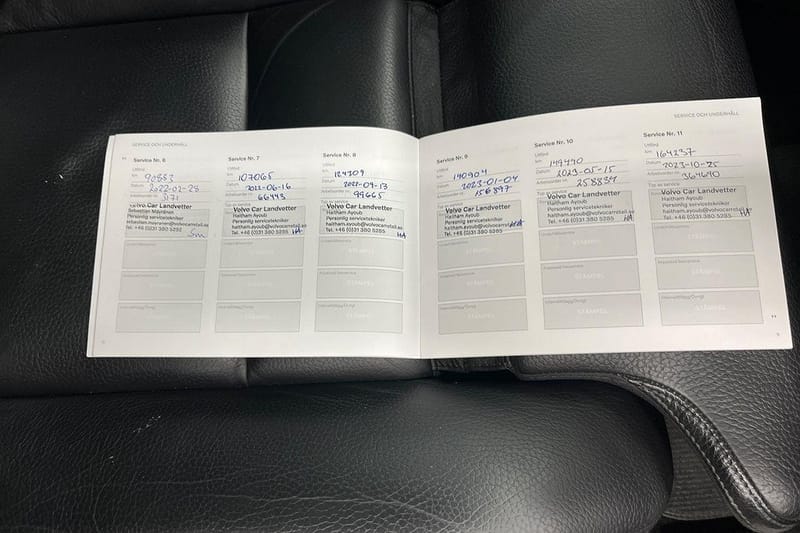 SERVICE OCH UNDERHÅLL
Service Nr. 6
Utförd
km 90883
Datum 2022-02-28
Arbetsorder nr. 3171
Volvo Car Landvetter
Sebastian
Personlig servicetekniker
Tel. +46 (0)31 380 5285
Sm
STÄMPEL
STÄMPEL
STÄMPEL
Service Nr. 7
Utförd
km 107065
Datum 2022-06-16
Arbetsorder nr. 66443
Volvo Car Landvetter
Haitham Ayoub
Personlig servicetekniker
haitham.ayoub@volvocarretail.se
Tel. +46 (0)31 380 5285 HA
STÄMPEL
STÄMPEL
STÄMPEL
Service Nr. 8
Utförd
km 124309
Datum 2022-09-13
Arbetsorder nr. 99665
Volvo Car Landvetter
Haitham Ayoub
Personlig servicetekniker
haitham.ayoub@volvocarretail.se
Tel. +46 (0)31 380 5285 HA
STÄMPEL
STÄMPEL
STÄMPEL
SERVICE OCH UNDERHÅLL
Service Nr. 9
Utförd
km 140904
Datum 2023-01-04
Arbetsorder nr. 156897
Typ av service
Volvo Car Landvetter
Haitham Ayoub
Personlig servicetekniker
haitham.ayoub@volvocarretail.se
Tel. +46 (0)31 380 5285 HA
STÄMPEL
STÄMPEL
STÄMPEL
Service Nr. 10
Utförd
km 149440
Datum 2023-05-15
Arbetsorder nr. 258839
Typ av service
Volvo Car Landvetter
Haitham Ayoub
Personlig servicetekniker
haitham.ayoub@volvocarretail.se
Tel. +46 (0)31 380 5285 HA
STÄMPEL
STÄMPEL
STÄMPEL
Service Nr. 11
Utförd
km 164237
Datum 2023-10-25
Arbetsorder nr. 364690
Typ av service
Volvo Car Landvetter
Haitham Ayoub
Personlig servicetekniker
haitham.ayoub@volvocarretail.se
Tel. +46 (0)31 380 5285 HA
STÄMPEL
STÄMPEL
STÄMPEL